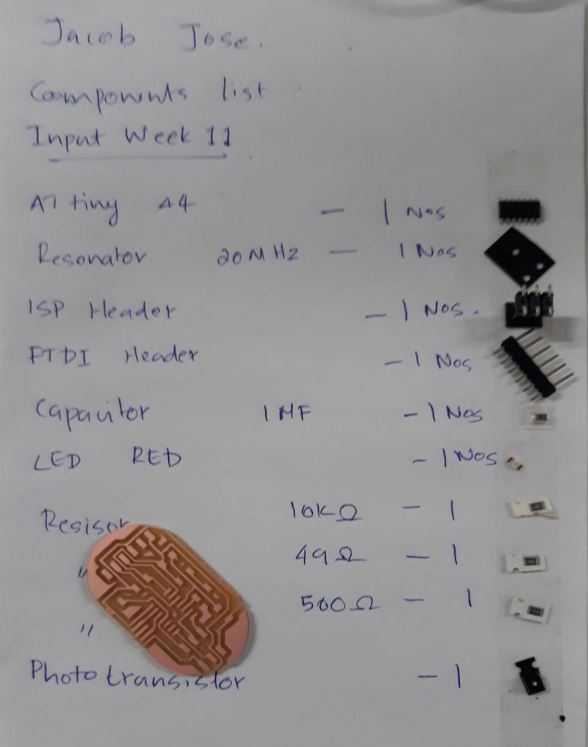 Jacob Jose.
Components list
Input Week 11
ATtiny 44 - 1 Nos
Resonator 20MHz - 1 Nos
ISP Header - 1 Nos.
FTDI Header - 1 Nos
Capacitor 1MF - 1 Nos
LED RED - 1 Nos
Resisor 10kΩ - 1
" 49Ω - 1
" 500Ω - 1
Phototransistor - 1